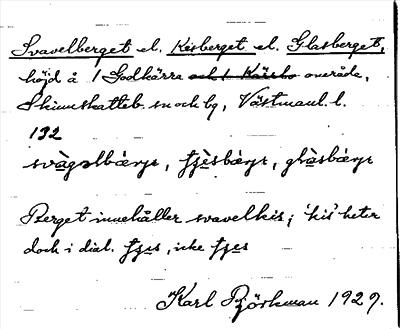 Svavelberget el. Kisberget el. Glasberget,
höjd å 1 Godkärra och 1 Kärrboområde,
Skinnskatteb. sn och bg, Västmanl. l.
132
svàgəlbæ̀rjɩ, ʃɩsbæ̀rjɩ, glàsbæ̀rjɩ
Berget innehåller svavelkis; 'kis' heter
dock i dial.
Karl Björkman 1927.